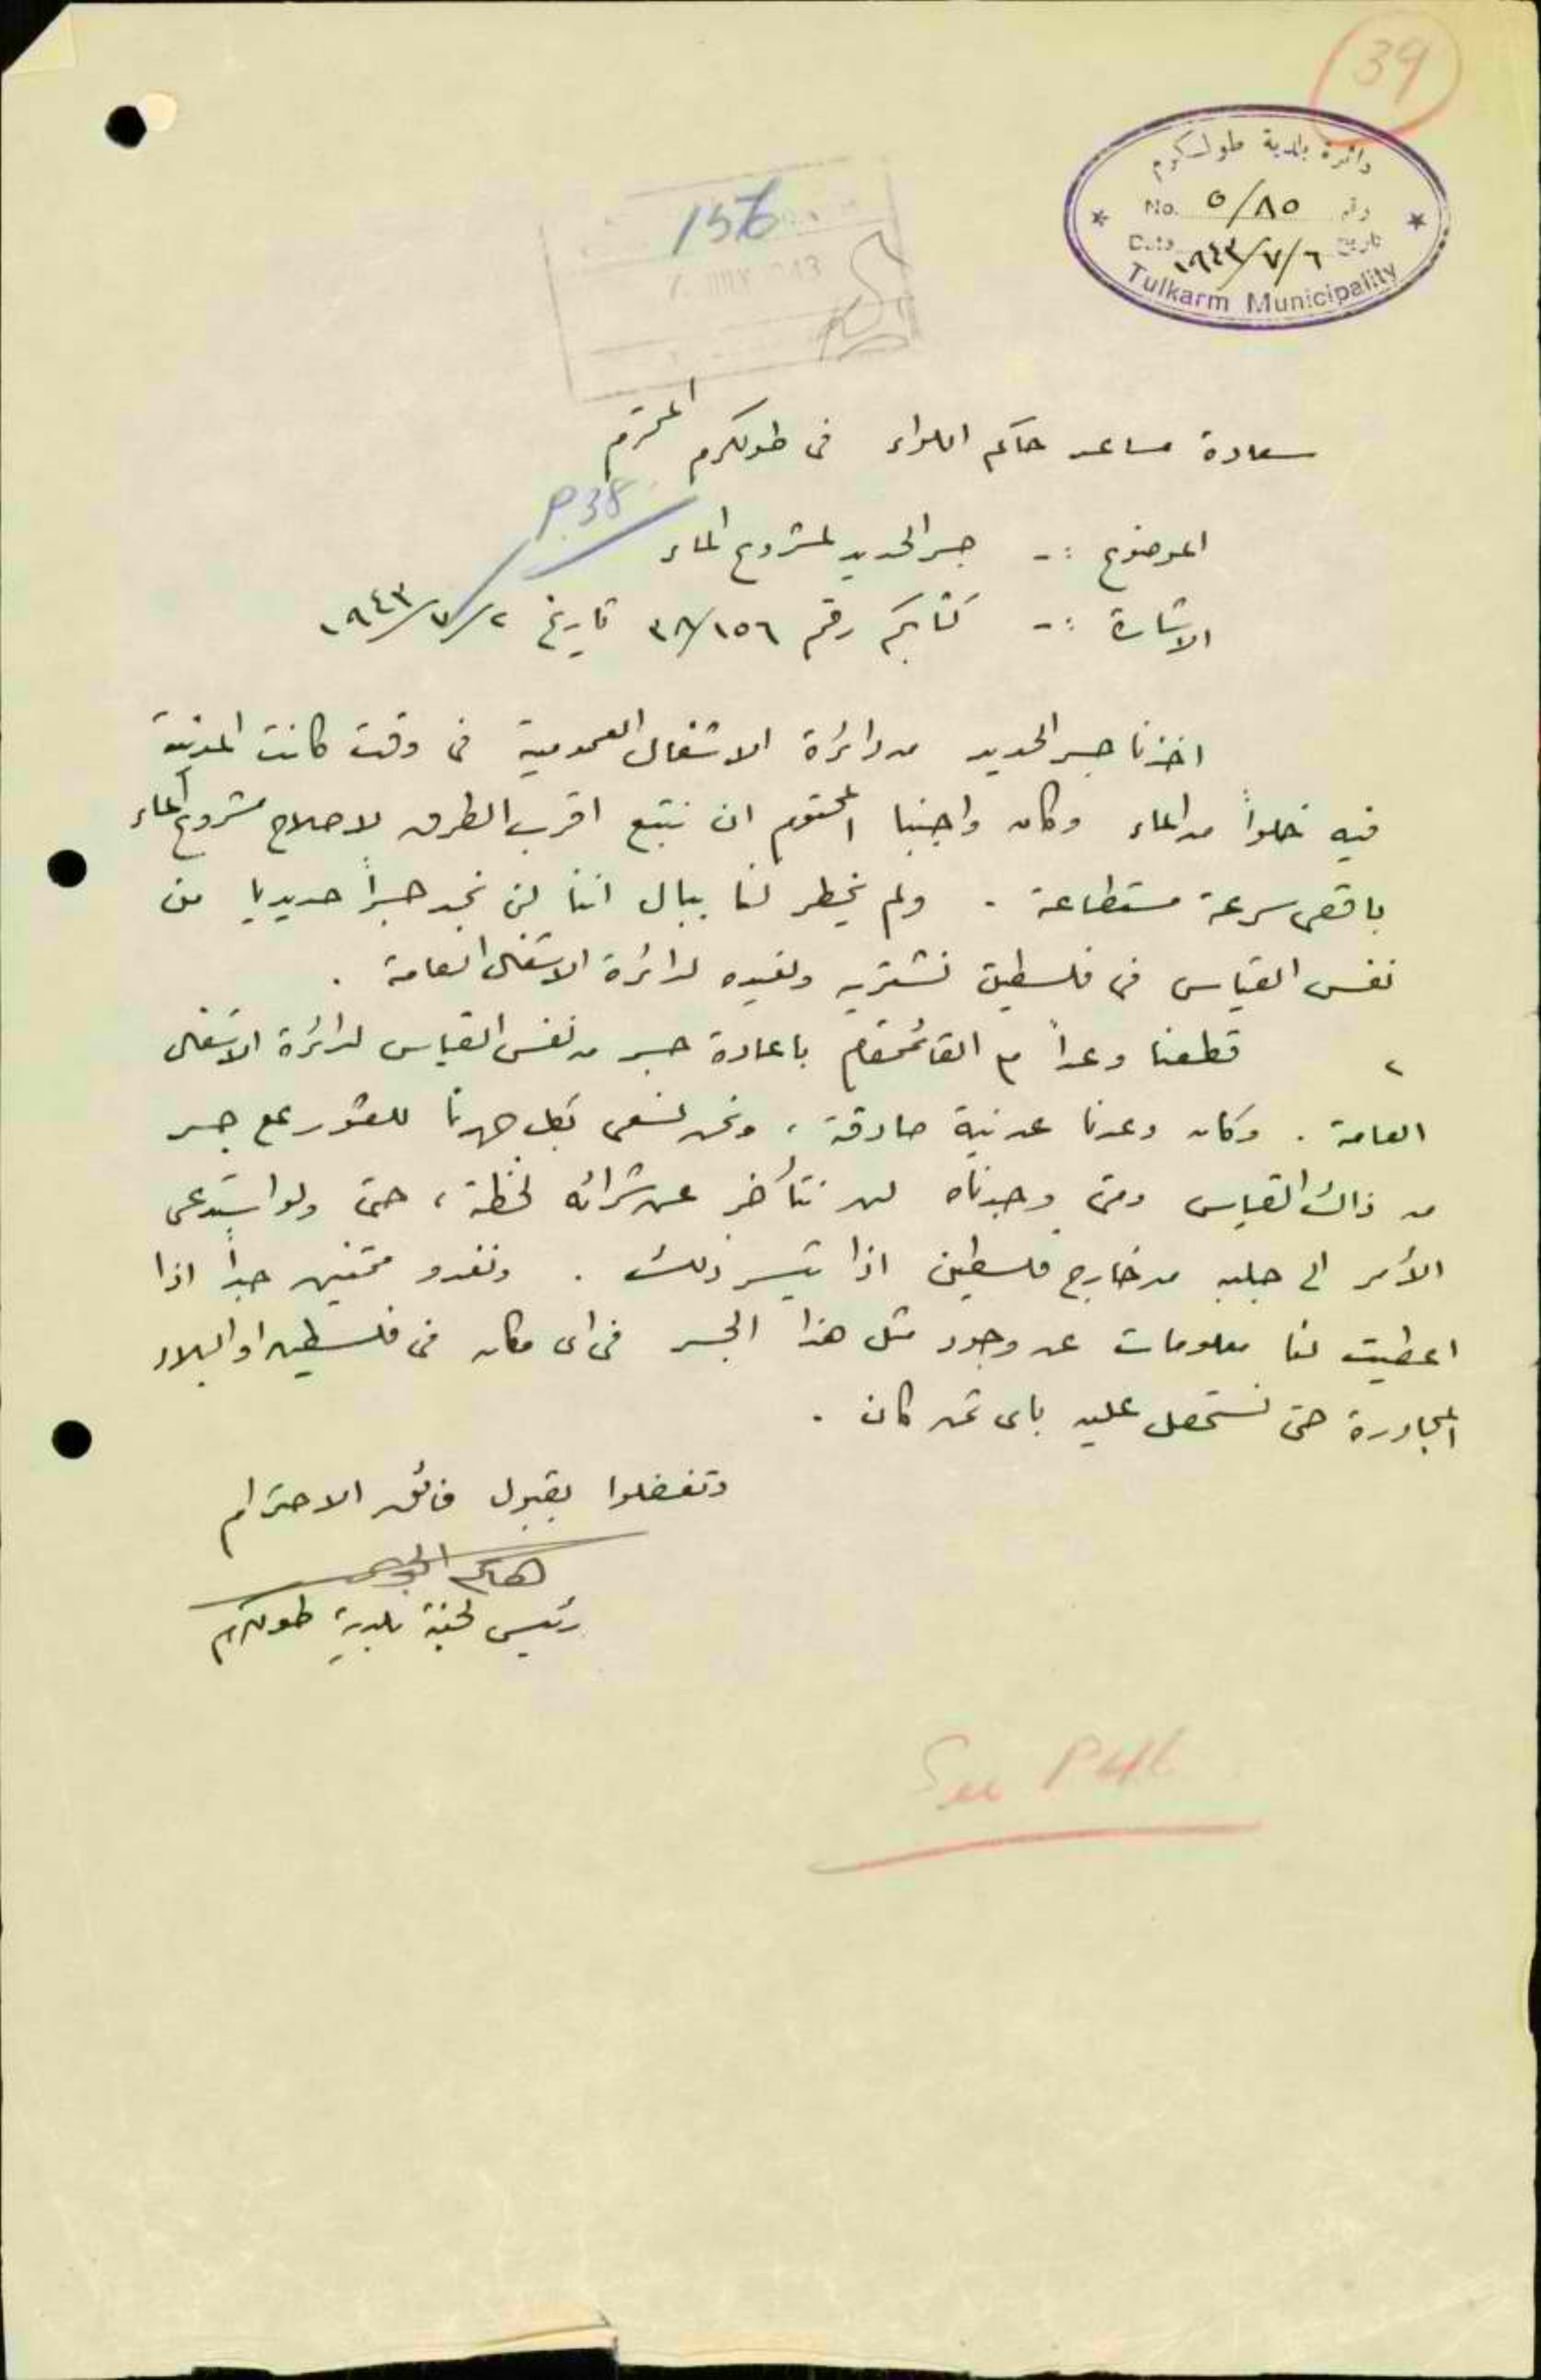 39
دائرة بلدية طولكرم
No. ٥/٨٥ رقم
Date ١٩٤٣/٧/٦ تاريخ
Tulkarm Municipality
156
سعادة مساعد حاكم اللواء فى طولكرم المحترم
P.38
الموضوع :- جسر الحديد لمشروع الماء
الاشارة :- كتابكم رقم ٣٨/١٥٦ تاريخ ١٩٤٣/٧/٢
اخذنا جسر الحديد من دائرة الاشغال العمومية فى وقت كانت المدينة
فيه خلواً من الماء وكان واجبنا المحتوم ان نتبع اقرب الطرق لاصلاح مشروع الماء
باقصى سرعة مستطاعة . ولم يخطر لنا ببال اننا لن نجد جسراً حديديا من
نفس القياس فى فلسطين نشتريه ونعيده لدائرة الاشغال العامة .
٢ قطعنا وعداً مع القائمقام باعادة جسر من نفس القياس لدائرة الاشغال
العامة . وكان وعدنا عن نية صادقة ، ونحن نسعى بكل جهدنا للعثور على جسر
من ذاك القياس ومتى وجدناه لن نتأخر عن شرائه لحظة ، حتى ولو استدعى
الأمر الى جلبه من خارج فلسطين اذا تيسر ذلك . ونغدو ممتنين جداً اذا
اعطيت لنا معلومات عن وجود مثل هذا الجسر فى اى مكان فى فلسطين او البلاد
المجاورة حتى نستحصل عليه باى ثمن كان .
وتفضلوا بقبول فائق الاحترام
هاشم الجيوسى
رئيس لجنة بلدية طولكرم
See P 46